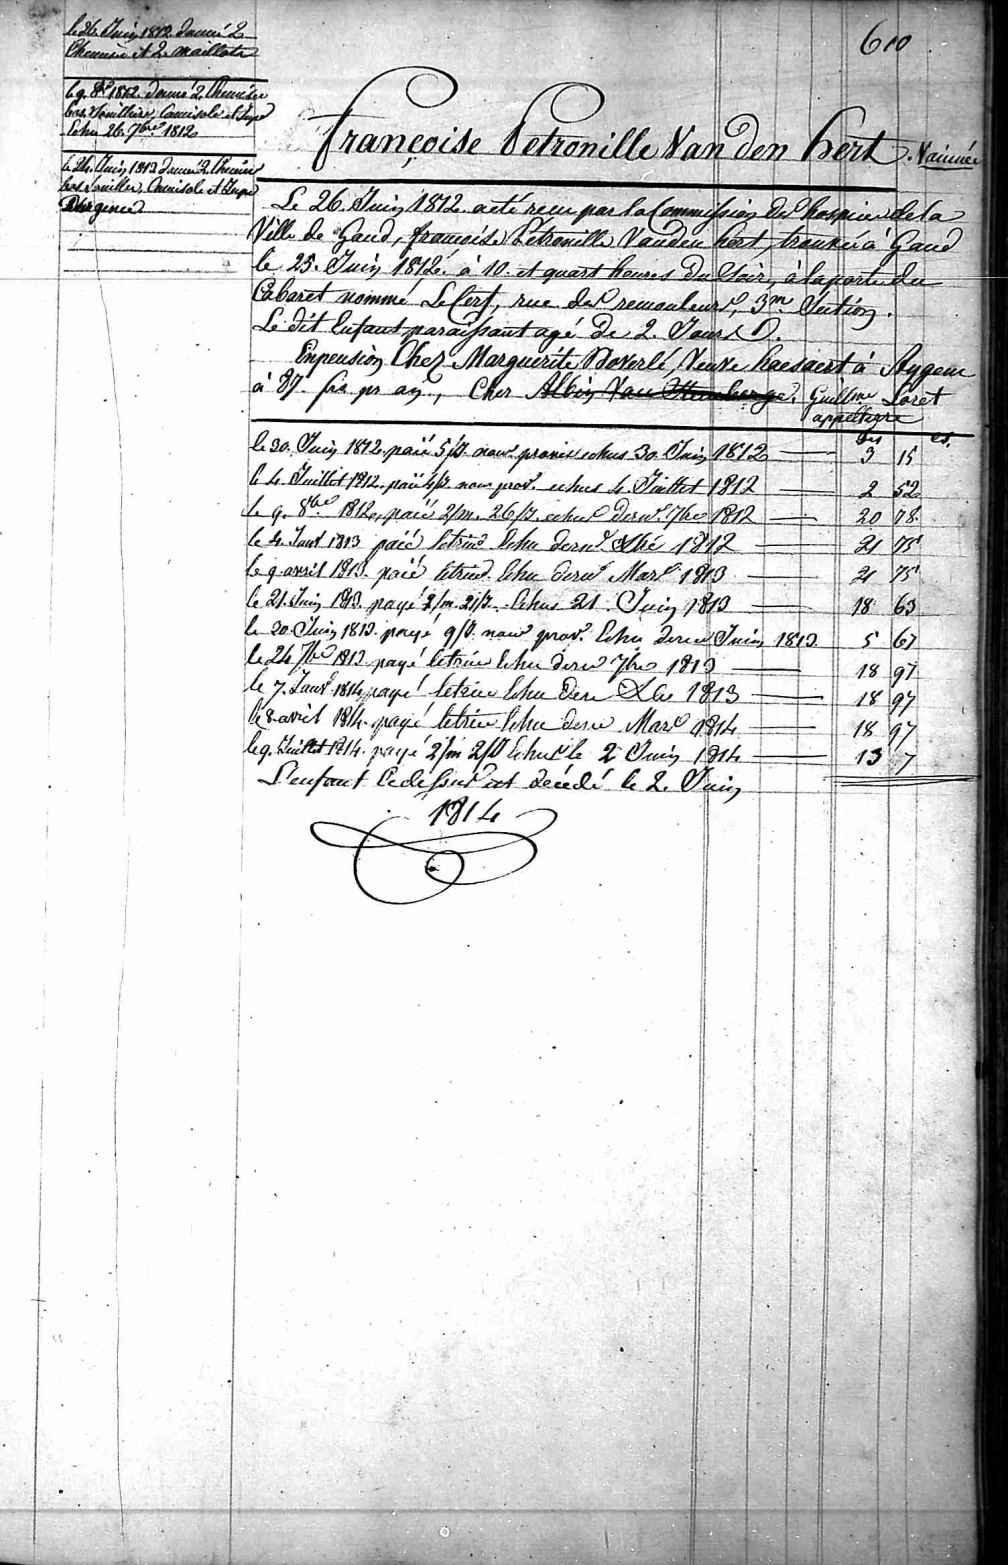 610
le 26. Juin 1812. donné 2
Chemise et 2. maillots
le 9. 8bre 1812. donné 2 Chemise
bas Souilliere, Camisole et Jupe
Echu 26 7bre 1812
le 24. Juin 1813 donné 2 Chemise
bas Souillier, Camisole et Jupe
Françoise Petronille Van den hert. Vaccinée
Le 26. Juin 1812. acté recu par la Commission des hospices de la
Ville de Gand, françoise Petronille Vanden hert, trouvée à Gand
le 25. Juin 1812. à 10. et quart heures du Soir, à la porte du
Cabaret nommé Le Cerf, rue des remouleurs, 3me Section.
Le dit Enfant paraissant agé de 2. Jours
Enpension Chez Marguerite Veuve haesaert à Aygem
à 87. fr pr an, Chez Albin Van Guillme Loret
appelterre
le 30. Juin 1812. paié 5/J. nouv. provis echus 30. Juin 1812 3 15
le 4. Juillet 1812. paié 4/J. nouv prov. echus 4. Juillet 1812 2 52
le 9. 8bre 1812, paié 2/m. 26/J. echus dernr. 7bre 1812 20 78
le 4. Janv 1813 paié letrim. Echu dernr Xbre 1812 21 75
le 9 avril 1813. paié letrim. Echu dernr Mars 1813 21 75
le 21. Juin 1813. payé 2/m. 21/J. Echus 21. Juin 1813 18 63
le 30 Juin 1813. payé 9/J. nouv prov. Echu derne Juin 1813. 5 67
le 24 7bre 1813 payé letrim Echu dern 7bre 1813 18 97
le 7. Janvr 1814 payé letrim Echu dern Xbre 1813 18 97
le 8. avril 1814. payé letrim Echu dern Mars 1814 18 97
le 9. Juillet 1814. payé 2/m 2/J Echus le 2 Juin 1814 13 7
L'enfant Cidessus est décédé le 2. Juin
1814